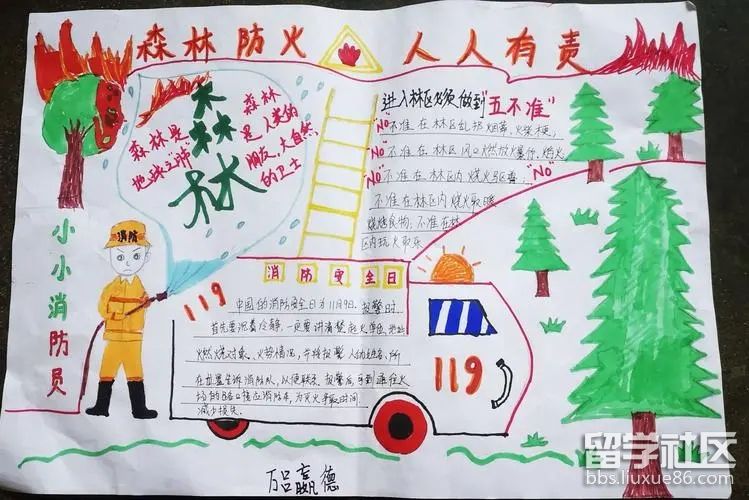 森林防火 人人有责
森林是
地球之肺
森林
森林
是人类的
朋友,大自然
的卫士
进入林区必须做到"五不准"
"NO"不准在林区乱扔烟蒂,火柴梗,
"NO"不准在林区风口燃放爆竹,焰火
"NO"不准在林区内烧火驱兽"NO"
不准在林区内烧火取暖
烧烤食物,不准在林
区内玩火取乐
小小消防员
消防
119
消防安全日
中国的消防安全日为11月9日.报警时
首先要沉着冷静,一定要讲清楚起火单位,地址
燃烧对象、火势情况,并将报警人的姓名、所
在位置告诉消防队,以便联系,报警后,可到通往火
场的路口接应消防车,为灭火争取时间
减少损失.
119
万吕嬴德
留学社区
bbs.liuxue86.com